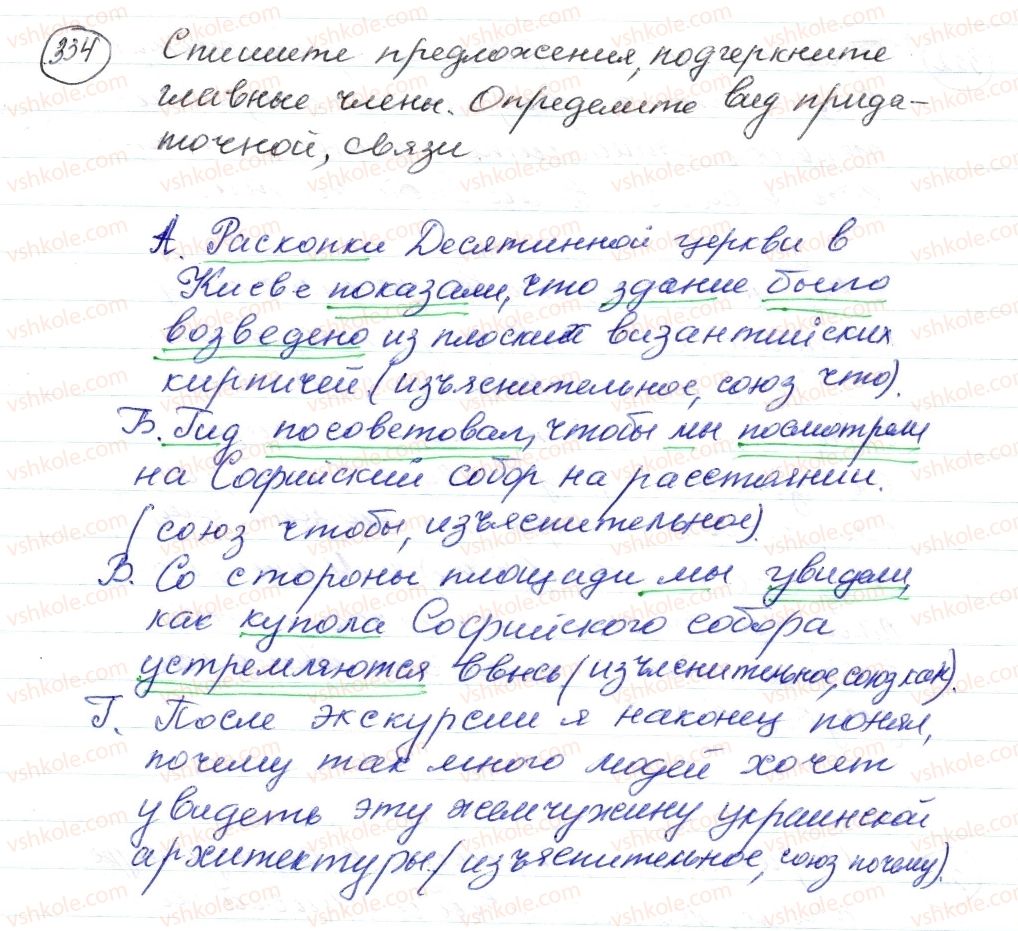 334 Спишите предложения, подчеркните
главные члены. Определите вид прида-
точной, связи
А. Раскопки Десятинной церкви в
Киеве показали, что здание было
возведено из плоских византийских
кирпичей (изъяснительное, союз что).
Б. Гид посоветовал, чтобы мы посмотрели
на Софийский собор на расстоянии.
(союз чтобы, изъяснительное).
В. Со стороны площади мы увидели,
как купола Софийского собора
устремляются ввысь (изъяснительное, союз как).
Г. После экскурсии я наконец понял,
почему так много людей хочет
увидеть эту жемчужину украинской
архитектуры. (изъяснительное, союз почему).
vshkole.com